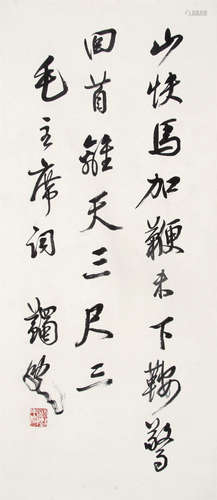 山快馬加鞭未下鞍驚
回首離天三尺三
毛主席词